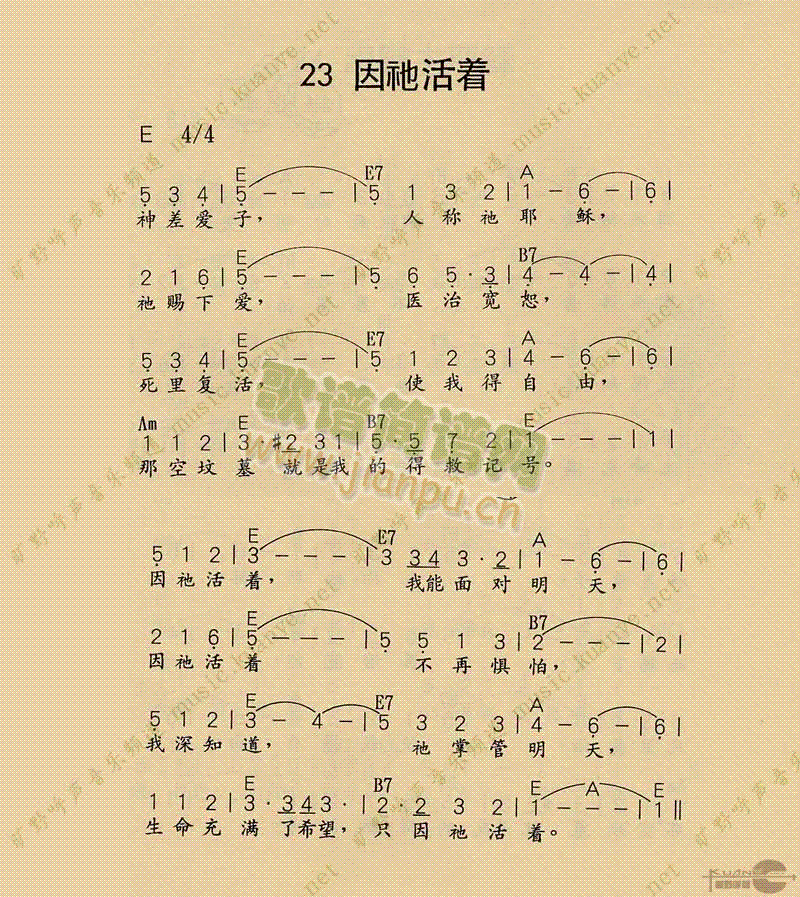 23 因祂活着
E 4/4
E E7 A
5 3 4 | 5 - - - | 5 1 3 2 | 1 - 6 - | 6 |
神差爱子， 人称祂耶稣，
B7
2 1 6 | 5 - - - | 5 6 5· 3 | 4 - 4 - | 4 |
祂赐下爱， 医治宽恕，
E E7 A
5 3 4 | 5 - - - | 5 1 2 3 | 4 - 6 - | 6 |
死里复活， 使我得自由，
Am E B7 E
1 1 2 | 3· #2 3 1 | 5· 5 7 2 | 1 - - - | 1 |
那空坟墓就是我的得救记号。
E E7 A
5 1 2 | 3 - - - | 3 34 3· 2 | 1 - 6 - | 6 |
因祂活着， 我能面对明天，
E B7
2 1 6 | 5 - - - | 5 5 1 3 | 2 - - - | 2 |
因祂活着 不再惧怕，
E E7 A
5 1 2 | 3 - 4 - | 5 3 2 3 | 4 - 6 - | 6 |
我深知道， 祂掌管明天，
E B7 E A E
1 1 2 | 3· 4 3 4 3 | 2· 2 3 2 | 1 - - - | 1 ‖
生命充满了希望，只因祂活着。
歌谱简谱网
www.jianpu.cn
旷野呼声音乐频道 music.kuanye.net
KUANYE